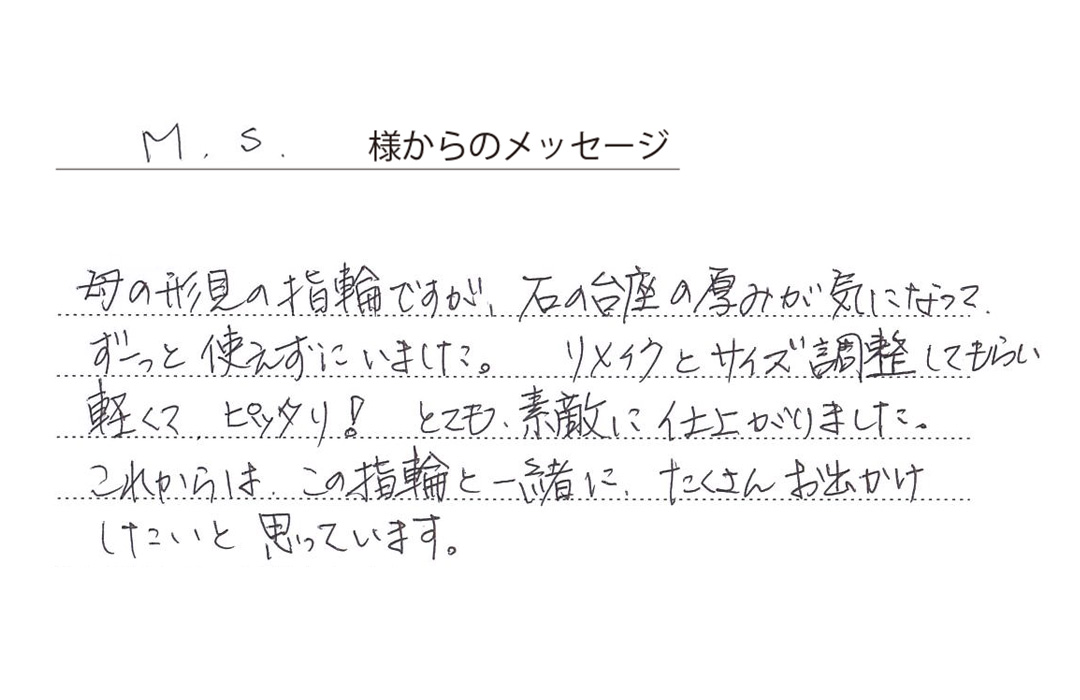 M. S. 様からのメッセージ
母の形見の指輪ですが、石の台座の厚みが気になって、
ずーっと使えずにいました。 リメイクとサイズ調整してもらい
軽くて、ピッタリ! とても、素敵に仕上がりました。
これからは、この指輪と一緒に、たくさんお出かけ
したいと思っています。